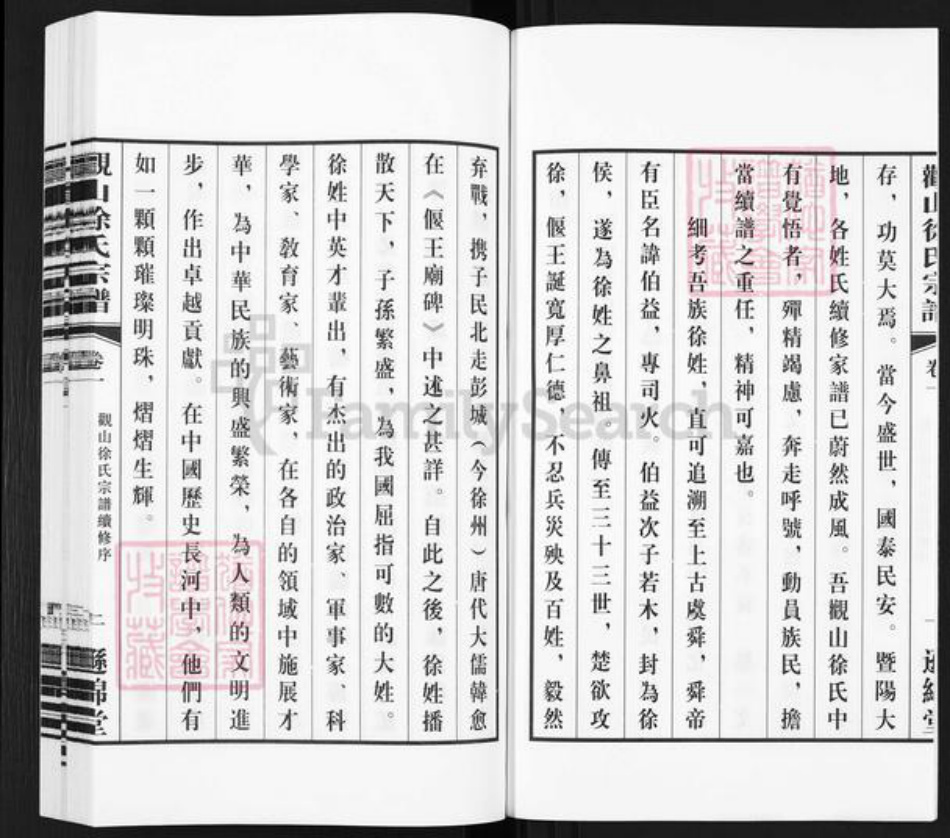 觀山徐氏宗譜
卷
存，功莫大焉。當今盛世，國泰民安。暨陽大
地，各姓氏續修家譜已蔚然成風。吾觀山徐氏中
有覺悟者，殫精竭慮，奔走呼號，動員族民，擔
當續譜之重任，精神可嘉也。
細考吾族徐姓，直可追溯至上古虞舜，舜帝
有臣名諱伯益，專司火。伯益次子若木，封為徐
侯，遂為徐姓之鼻祖。傳至三十三世，楚欲攻
徐，偃王誕寬厚仁德，不忍兵災殃及百姓，毅然
弃戰，携子民北走彭城（今徐州）唐代大儒韓愈
在《偃王廟碑》中述之甚詳。自此之後，徐姓播
散天下，子孫繁盛，為我國屈指可數的大姓。
徐姓中英才輩出，有杰出的政治家、軍事家、科
學家、教育家、藝術家，在各自的領域中施展才
華，為中華民族的興盛繁榮，為人類的文明進
步，作出卓越貢獻。在中國歷史長河中，他們有
如一顆顆璀璨明珠，熠熠生輝。
觀山徐氏宗譜
卷一
觀山徐氏宗譜續修序
二
遜錦堂
FamilySearch